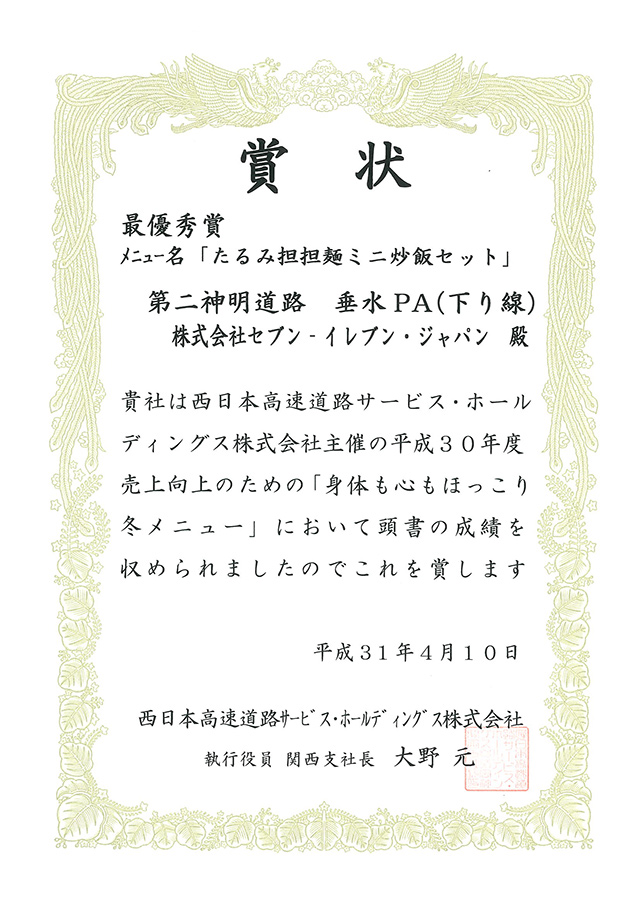 賞状
最優秀賞
ﾒﾆｭｰ名「たるみ担担麺ミニ炒飯セット」
第二神明道路　垂水PA(下り線)
株式会社セブン‐イレブン・ジャパン　殿
貴社は西日本高速道路サービス・ホール
ディングス株式会社主催の平成３０年度
売上向上のための「身体も心もほっこり
冬メニュー」において頭書の成績を
収められましたのでこれを賞します
平成３１年４月１０日
西日本高速道路ｻｰﾋﾞｽ・ﾎｰﾙﾃﾞｨﾝｸﾞｽ株式会社
執行役員 関西支社長　大野 元